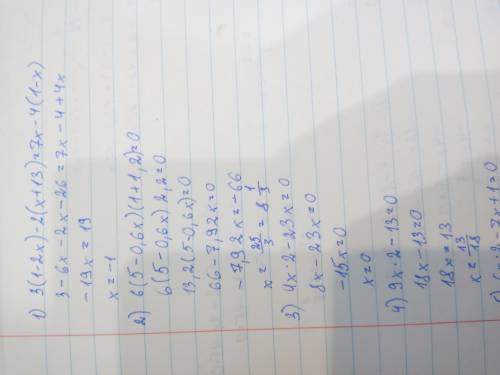 1) 3(1-2x)-2(x+13)=7x-4(1-x)
3-6x-2x-26=7x-4+4x
-19x=19
x=-1
2) 6(5-0,6x)(1+1,2)=0
6(5-0,6x) 2,2=0
13,2(5-0,6x)=0
66-7,92x=0
-7,92x=-66
x=25/3=8 1/3
3) 4x·2-23x=0
8x-23x=0
-15x=0
x=0
4) 9x·2-13=0
18x-13=0
18x=13
x=13/18